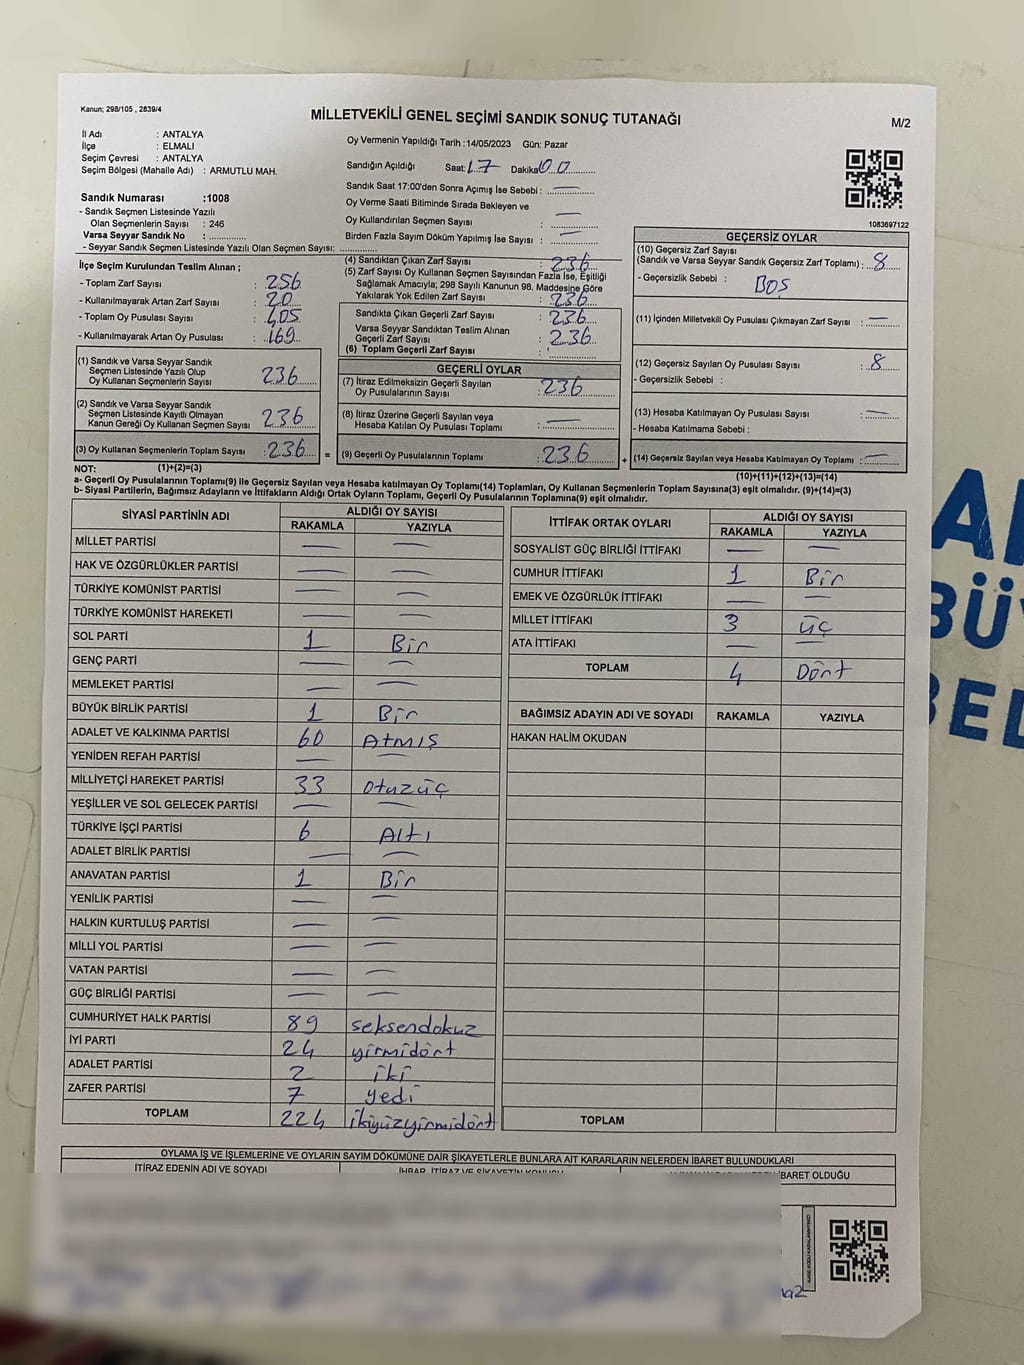 Kanun; 298/105 , 2839/4
MİLLETVEKİLİ GENEL SEÇİMİ SANDIK SONUÇ TUTANAĞI
M/2
İl Adı : ANTALYA
İlçe : ELMALI
Seçim Çevresi : ANTALYA
Seçim Bölgesi (Mahalle Adı) : ARMUTLU MAH.
Sandık Numarası :1008
- Sandık Seçmen Listesinde Yazılı
Olan Seçmenlerin Sayısı : 246
Varsa Seyyar Sandık No :
- Seyyar Sandık Seçmen Listesinde Yazılı Olan Seçmen Sayısı:
Oy Vermenin Yapıldığı Tarih :14/05/2023 Gün: Pazar
Sandığın Açıldığı Saat: 17 Dakika 00
Sandık Saat 17:00'den Sonra Açımış İse Sebebi : —
Oy Verme Saati Bitiminde Sırada Bekleyen ve
Oy Kullandırılan Seçmen Sayısı : —
Birden Fazla Sayım Döküm Yapılmış İse Sayısı : —
1083697122
İlçe Seçim Kurulundan Teslim Alınan ;
- Toplam Zarf Sayısı : 256
- Kullanılmayarak Artan Zarf Sayısı : 20
- Toplam Oy Pusulası Sayısı : 405
- Kullanılmayarak Artan Oy Pusulası : 169
(1) Sandık ve Varsa Seyyar Sandık
Seçmen Listesinde Yazılı Olup
Oy Kullanan Seçmenlerin Sayısı 236
(2) Sandık ve Varsa Seyyar Sandık
Seçmen Listesinde Kayıtlı Olmayan
Kanun Gereği Oy Kullanan Seçmen Sayısı 236
(3) Oy Kullanan Seçmenlerin Toplam Sayısı : 236 =
(4) Sandıktan Çıkan Zarf Sayısı : 236
(5) Zarf Sayısı Oy Kullanan Seçmen Sayısından Fazla İse, Eşitliği
Sağlamak Amacıyla; 298 Sayılı Kanunun 98. Maddesine Göre
Yakılarak Yok Edilen Zarf Sayısı : 236
Sandıkta Çıkan Geçerli Zarf Sayısı : 236
Varsa Seyyar Sandıktan Teslim Alınan
Geçerli Zarf Sayısı : 236
(6) Toplam Geçerli Zarf Sayısı :
GEÇERLİ OYLAR
(7) İtiraz Edilmeksizin Geçerli Sayılan
Oy Pusulalarının Sayısı : 236
(8) İtiraz Üzerine Geçerli Sayılan veya
Hesaba Katılan Oy Pusulası Toplamı : —
(9) Geçerli Oy Pusulalarının Toplamı : 236 +
GEÇERSİZ OYLAR
(10) Geçersiz Zarf Sayısı
(Sandık ve Varsa Seyyar Sandık Geçersiz Zarf Toplamı) : 8
- Geçersizlik Sebebi : BOŞ
(11) İçinden Milletvekili Oy Pusulası Çıkmayan Zarf Sayısı : —
(12) Geçersiz Sayılan Oy Pusulası Sayısı : 8
- Geçersizlik Sebebi :
(13) Hesaba Katılmayan Oy Pusulası Sayısı : —
- Hesaba Katılmama Sebebi :
(14) Geçersiz Sayılan veya Hesaba Katılmayan Oy Toplamı : —
NOT: (1)+(2)=(3) (10)+(11)+(12)+(13)=(14)
a- Geçerli Oy Pusulalarının Toplamı(9) ile Geçersiz Sayılan veya Hesaba katılmayan Oy Toplamı(14) Toplamları, Oy Kullanan Seçmenlerin Toplam Sayısına(3) eşit olmalıdır. (9)+(14)=(3)
b- Siyasi Partilerin, Bağımsız Adayların ve İttifakların Aldığı Ortak Oyların Toplamı, Geçerli Oy Pusulalarının Toplamına(9) eşit olmalıdır.
SİYASİ PARTİNİN ADI ALDIĞI OY SAYISI
RAKAMLA YAZIYLA
MİLLET PARTİSİ — —
HAK VE ÖZGÜRLÜKLER PARTİSİ — —
TÜRKİYE KOMÜNİST PARTİSİ — —
TÜRKİYE KOMÜNİST HAREKETİ — —
SOL PARTİ 1 Bir
GENÇ PARTİ — —
MEMLEKET PARTİSİ — —
BÜYÜK BİRLİK PARTİSİ 1 Bir
ADALET VE KALKINMA PARTİSİ 60 Atmış
YENİDEN REFAH PARTİSİ — —
MİLLİYETÇİ HAREKET PARTİSİ 33 otuzüç
YEŞİLLER VE SOL GELECEK PARTİSİ — —
TÜRKİYE İŞÇİ PARTİSİ 6 Altı
ADALET BİRLİK PARTİSİ — —
ANAVATAN PARTİSİ 1 Bir
YENİLİK PARTİSİ — —
HALKIN KURTULUŞ PARTİSİ — —
MİLLİ YOL PARTİSİ — —
VATAN PARTİSİ — —
GÜÇ BİRLİĞİ PARTİSİ — —
CUMHURİYET HALK PARTİSİ 89 seksendokuz
İYİ PARTİ 24 yirmidört
ADALET PARTİSİ 2 iki
ZAFER PARTİSİ 7 yedi
TOPLAM 224 ikiyüzyirmidört
İTTİFAK ORTAK OYLARI ALDIĞI OY SAYISI
RAKAMLA YAZIYLA
SOSYALİST GÜÇ BİRLİĞİ İTTİFAKI — —
CUMHUR İTTİFAKI 1 Bir
EMEK VE ÖZGÜRLÜK İTTİFAKI — —
MİLLET İTTİFAKI 3 üç
ATA İTTİFAKI — —
TOPLAM 4 Dört
BAĞIMSIZ ADAYIN ADI VE SOYADI RAKAMLA YAZIYLA
HAKAN HALİM OKUDAN
TOPLAM
OYLAMA İŞ VE İŞLEMLERİNE VE OYLARIN SAYIM DÖKÜMÜNE DAİR ŞİKAYETLERLE BUNLARA AİT KARARLARIN NELERDEN İBARET BULUNDUKLARI
İTİRAZ EDENİN ADI VE SOYADI İHBAR, İTİRAZ VE ŞİKAYETİN KONUSU İBARET OLDUĞU
BÜY
BEL